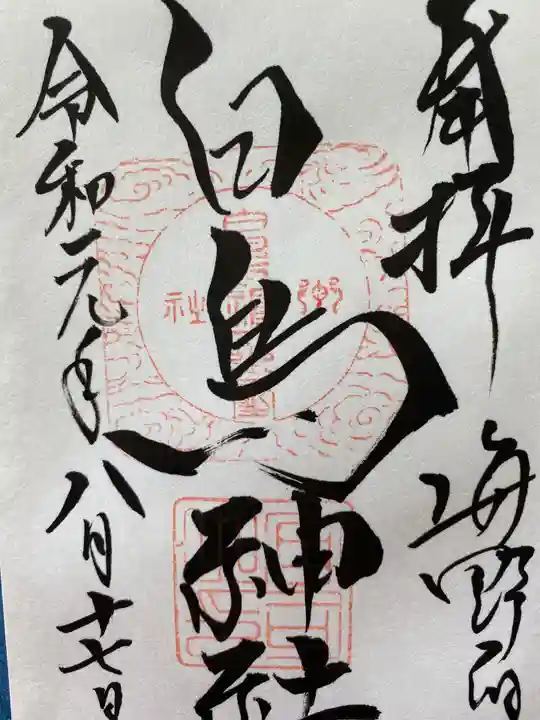 奉拝
海野宿
白鳥神社
令和元年八月十七日